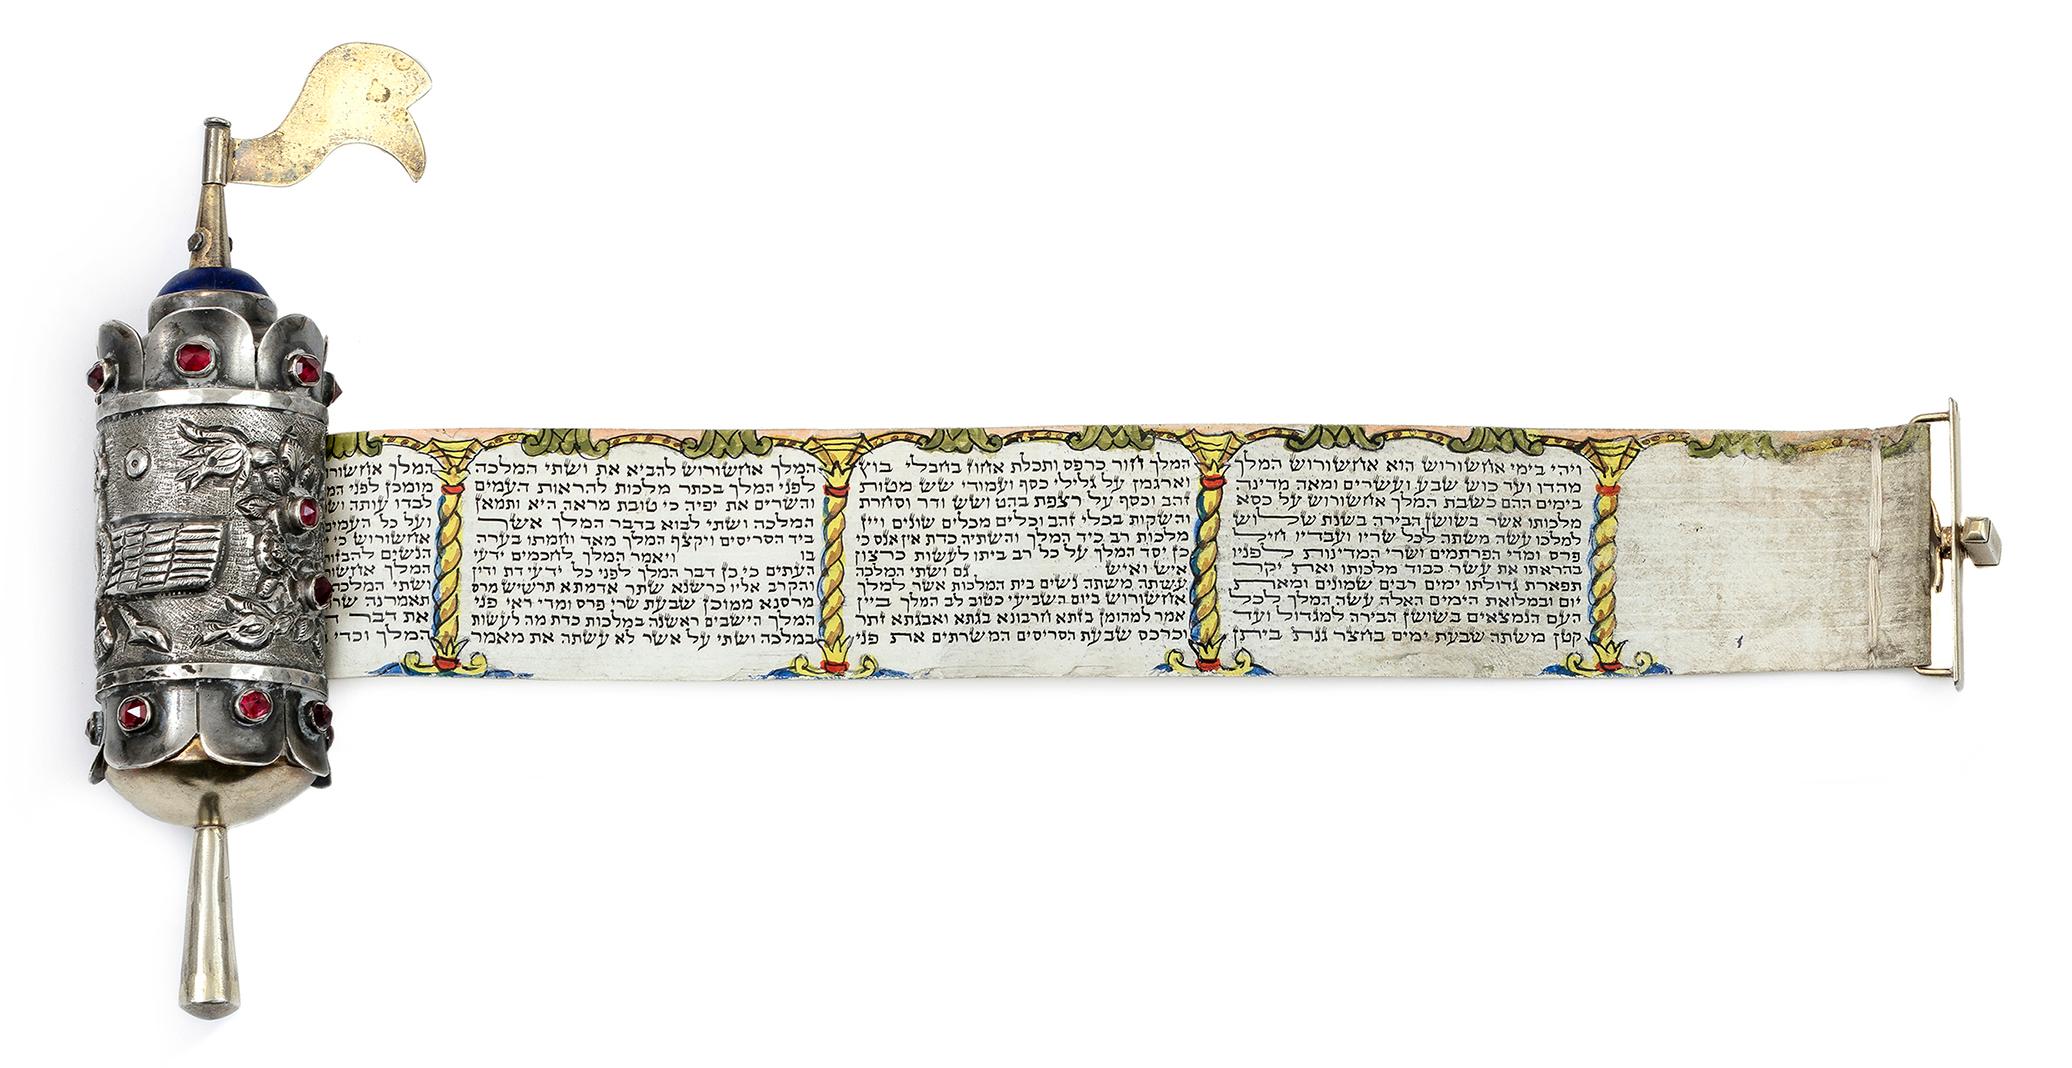 ויהי בימי אחשורוש הוא אחשורוש המלך
מהדו ועד כוש שבע ועשרים ומאה מדינה
בימים ההם כשבת המלך אחשורוש על כסא
מלכותו אשר בשושן הבירה בשנת שלוש
למלכו עשה משתה לכל שריו ועבדיו חיל
פרס ומדי הפרתמים ושרי המדינות לפניו
בהראתו את עשר כבוד מלכותו ואת יקר
תפארת גדולתו ימים רבים שמונים ומאת
יום ובמלואת הימים האלה עשה המלך לכל
העם הנמצאים בשושן הבירה למגדול ועד
קטן משתה שבעת ימים בחצר גנת ביתן
המלך חור כרפס ותכלת אחוז בחבלי בוץ
וארגמן על גלילי כסף ועמודי שש מטות
זהב וכסף על רצפת בהט ושש ודר וסחרת
והשקות בכלי זהב וכלים מכלים שונים ויין
מלכות רב כיד המלך והשתיה כדת אין אנס כי
כן יסד המלך על כל רב ביתו לעשות כרצון
איש ואיש גם ושתי המלכה
עשתה משתה נשים בית המלכות אשר למלך
אחשורוש ביום השביעי כטוב לב המלך ביין
אמר למהומן בזתא חרבונא בגתא ואבגתא זתר
וכרכס שבעת הסריסים המשרתים את פני
המלך אחשורוש להביא את ושתי המלכה
לפני המלך בכתר מלכות להראות העמים
והשרים את יפיה כי טובת מראה היא ותמאן
המלכה ושתי לבוא בדבר המלך אשר
ביד הסריסים ויקצף המלך מאד וחמתו בערה
בו ויאמר המלך לחכמים ידעי
העתים כי כן דבר המלך לפני כל ידעי דת ודין
והקרב אליו כרשנא שתר אדמתא תרשיש מרס
מרסנא ממוכן שבעת שרי פרס ומדי ראי פני
המלך הישבים ראשנה במלכות כדת מה לעשות
במלכה ושתי על אשר לא עשתה את מאמר
המלך
מומכן לפני
לבדו עותה
ועל כל העמים
אחשורוש כי
הנשים
המלך
ושתי המלכה
תאמרנה
את דבר
המלך